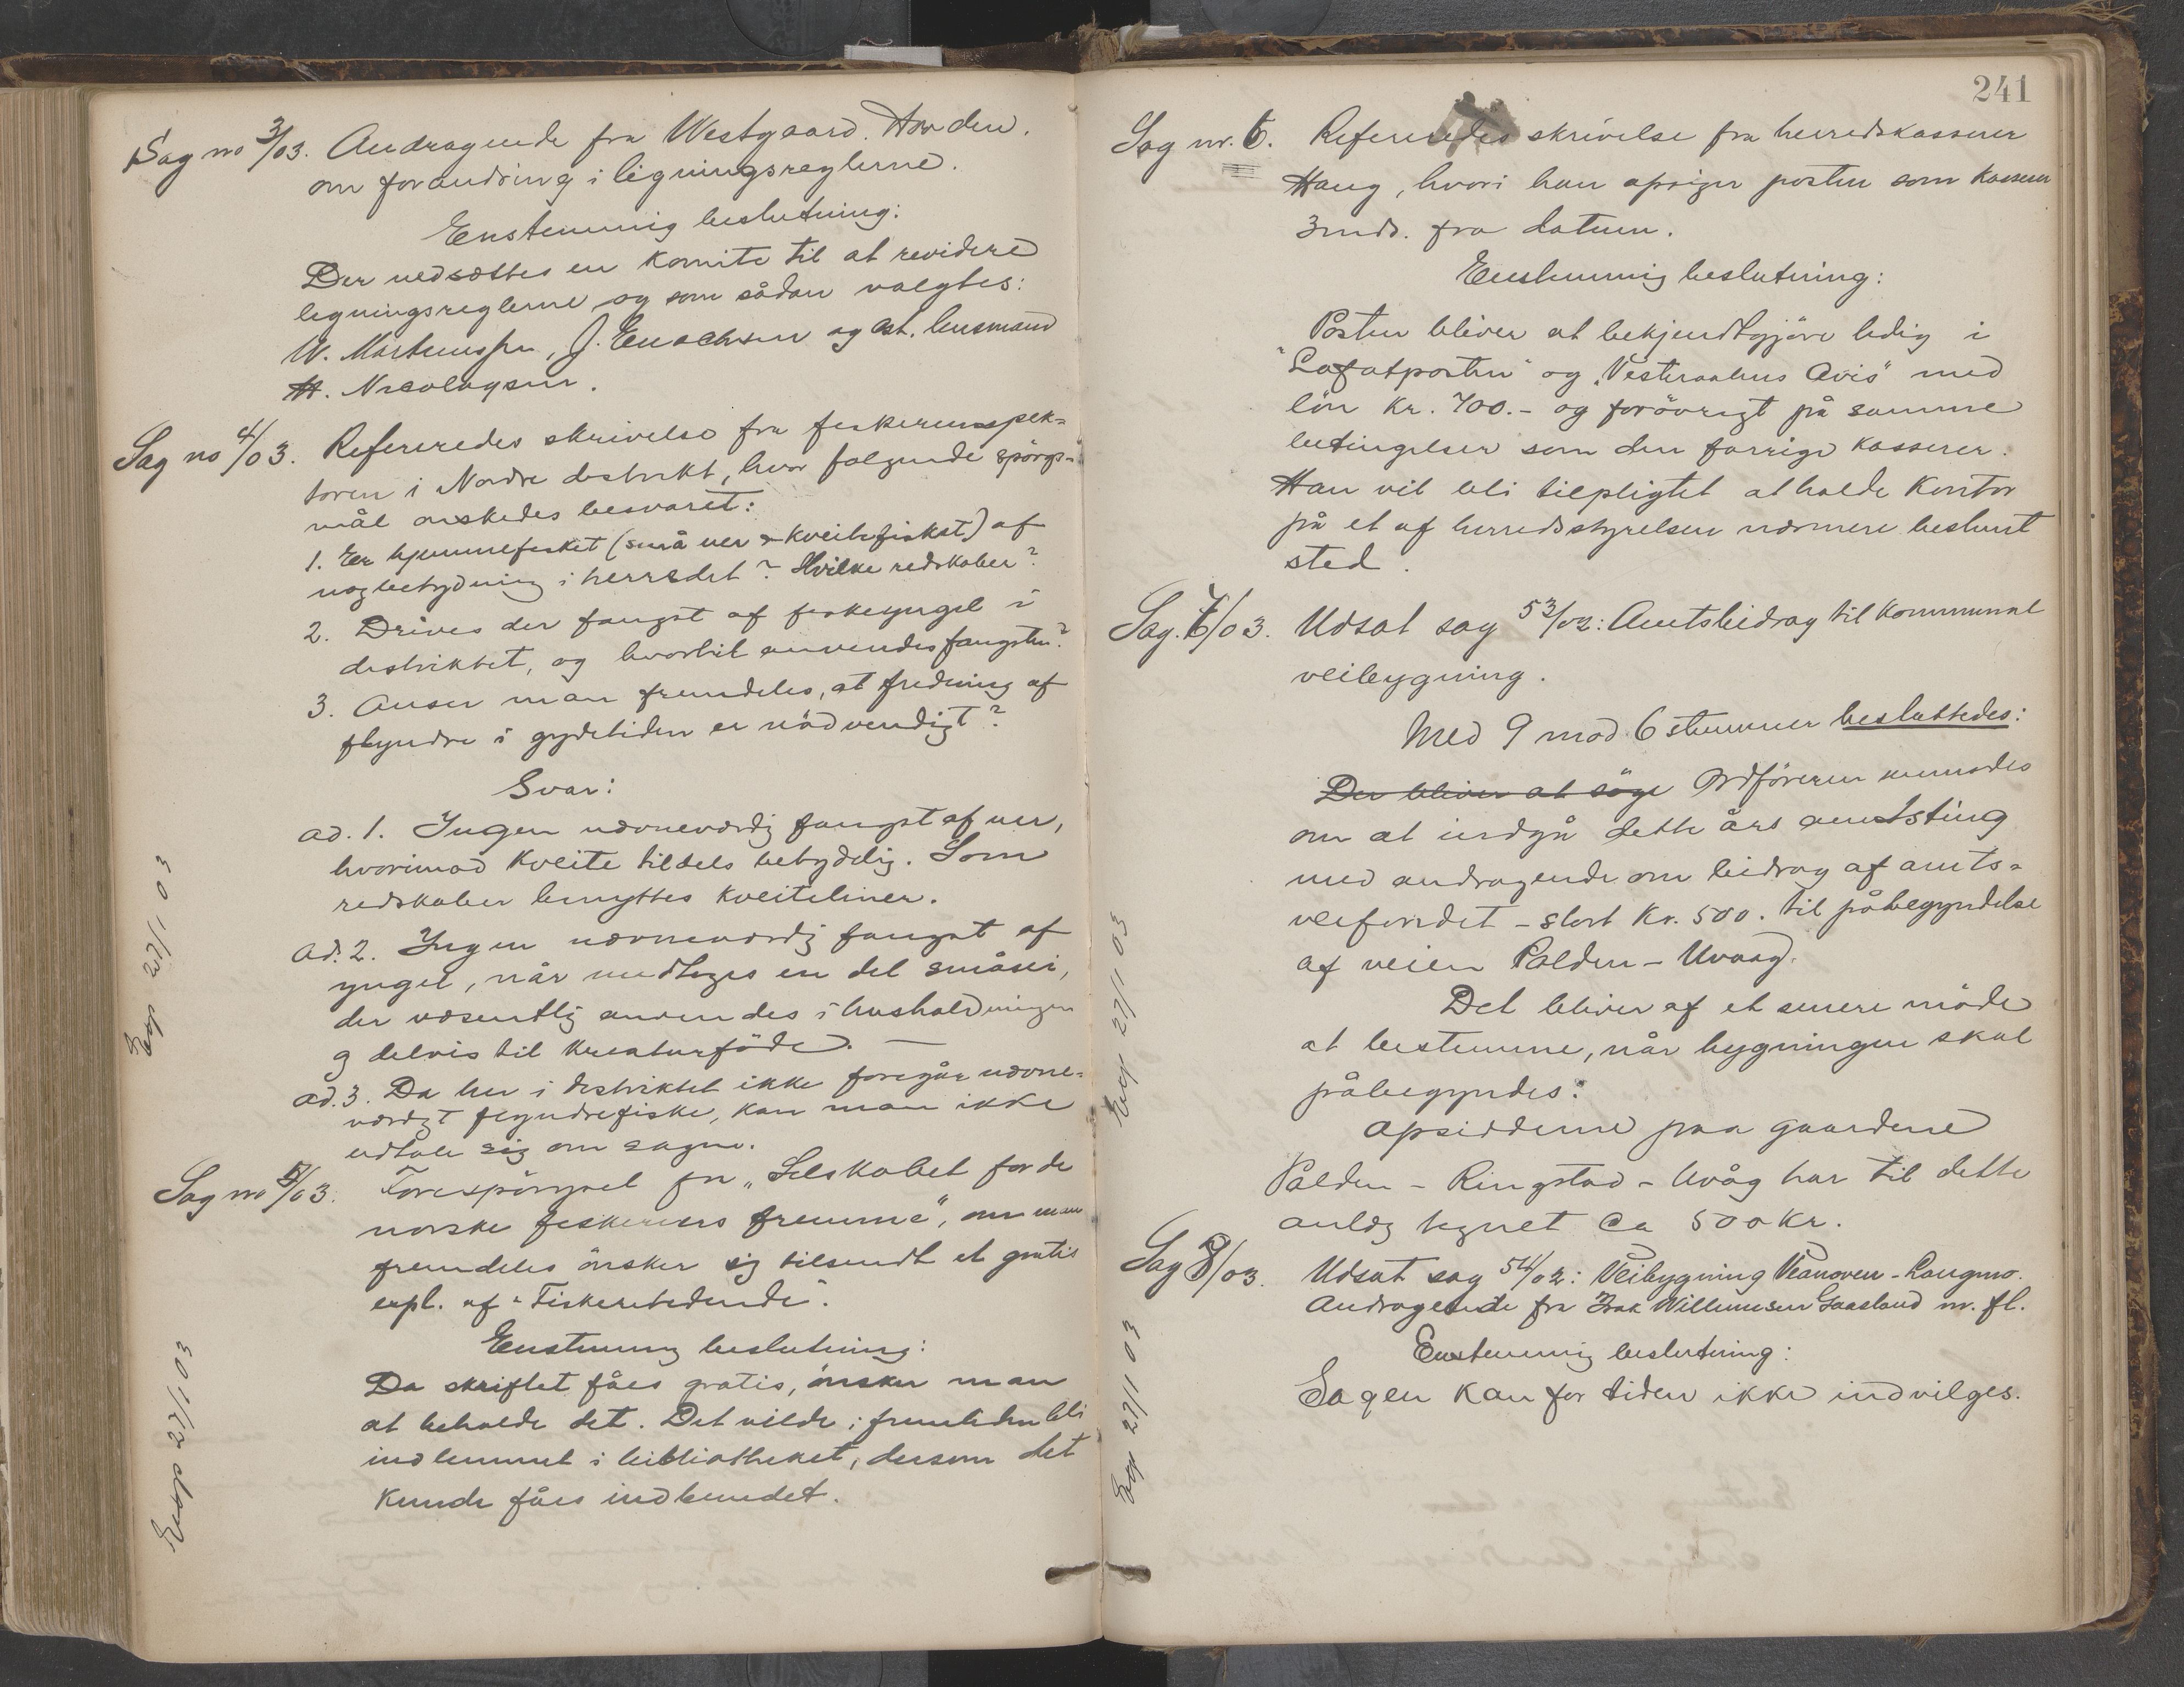 Sag no 3/03. Andragende fra Westgaard. Hovden.
om forandring i ligningsreglerne.
Enstemmig beslutning:
Der nedsættes en komite til at revidere
legningsreglerne og som sådan valgtes:
W. Martenssen, J. Enochsen og ast. lensmand
H. Nicolaysen.
Sag no 4/03. Refereredes skrivelse fra fiskeriinspek-
tøren i Nordre distrikt, hvor følgende spörgs-
mål önskedes besvaret:
1. Er hjemmefisket (små uer & kveitefisket) af
nog betydning i herredet? Hvilke redskaber?
2. Drives der fangst af fiskeyngel i
distriktet, og hvortil anvendes fangsten?
3. Anser man fremdeles, at fredning af
flyndre i gydetiden er nödvendigt?
Svar:
ad. 1. Ingen nævneværdig fangst af uer,
hvorimod kveite tildels betydelig. Som
redskaber benyttes kveiteliner.
ad. 2. Ingen nævneværdig fangst af
yngel, når undtages en del småsei,
der væsentlig anvendes i husholdningen
og delvis til kreaturföde. —
ad. 3. Da her i distriktet ikke foregår nævne-
værdigt flyndrefiske, kan man ikke
udtale sig om sagen.
Exp 27/1 03
Sag no 5/03. Forespörgsel fra „Selskabet for de
norske fiskeriers fremme", om man
fremdeles önsker sig tilsendt et gratis
expl. af "Fisketidende".
Enstemmig beslutning:
Da skriftet fåes gratis, önsker man
at beholde det. Det vilde i fremtiden bli
indlemmet i bibliotheket, dersom det
kunde fåes indbundet.
Exp 27/1 03
241
Sag nr. 6. Refereredes skrivelse fra herredskasserer
Haug, hvori han opsiger posten som kasserer
3 mds. fra datum.
Enstemmig beslutning:
Posten bliver at bekjendtgjöre ledig i
"Lofotposten" og „Vesteraalens Avis" med
lön kr. 700.- og forövrigt på samme
betingelser som den forrige kasserer.
Han vil bli tilpligtet at holde kontor
på et af herredsstyrelsen nærmere bestemt
sted.
Sag. 7/03. Udsat sag 53/02: Amtsbidrag til kommunal
veibygning.
Med 9 mod 6 stemmer besluttedes:
Der bliver at söge Ordföreren anmodes
om at indgå dette års amtsting
med andragende om bidrag af amts-
veifondet - stort kr. 500. til påbegyndelse
af veien Polden - Uvaag.
Det bliver af et senere möde
at bestemme, når bygningen skal
påbegyndes.
Opsidderne paa gaardene
Polden - Ringstad - Uvåg har til dette
anlæg tegnet ca 500 kr.
Exp 27/1 03
Sag 8/03. Udsat sag 54/02: Veibygning Veanoven - Langmo.
Andragende fra Isak Willumsen Gaasland m. fl.
Enstemmig beslutning:
Sagen kan for tiden ikke indvilges.
Exp 27/1 03